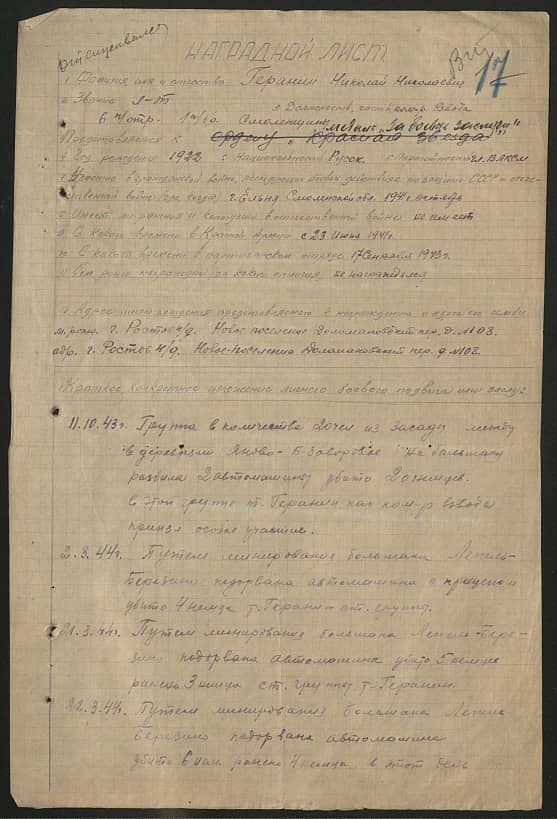 17
НАГРАДНОЙ ЛИСТ
1 Фамилия имя и отчество Геранин Николай Николаевич
2 Звание Л-т 3 Должность, часть комр. взвода
6 п/отр. 1 п/бр Смоленщины
Медаль "За боевые заслуги"
Представляется к ордену "Красная звезда"
Год рождения 1922 г. Национальность Русск. Партийность чл. ВЛКСМ
Участие в гражданской войне, последующих боевых действиях по защите СССР и отече-
ственной войне (где, когда) г. Ельня Смоленской обл. 1941г. октябрь
Имеет ли ранения и контузии в отечественной войне не имеет
С какого времени в Красной Армии с 23 июня 1941г.
С какого времени в партизанском отряде 17 сентября 1943г.
Чем ранее награжден (за какие отличия) не награждался
Адрес представляемого к награждению и адрес его семьи
г. Ростов н/Д. Новое поселение Доломановский пер. д. №108.
адр. г. Ростов н/Д. Новое-Поселение Доломановский пер. д №108.
Краткое конкретное изложение личного боевого подвига или заслуг.
11.10.43г. Группа в количестве 20 чел из засады между
деревнями Яново - на большаке
разбила 2 автомашины убито 20 немцев.
в этой группе т. Геранин как ком-р взвода
принял особое участие.
2.3.44г. Путем минирования большака Лепель-
Березино подорвана автомашина с прицепом
убито 4 немца т. Геранин ст. группы.
21.3.44г. Путем минирования большака Лепель-Бере-
зино подорвана автомашина убито 5 немцев
ранено 3 немца ст. группы т. Геранин.
22.3.44г. Путем минирования большака Лепель
Березино подорвана автомашина
убито 6 нем. ранено 4 немца. в этот день